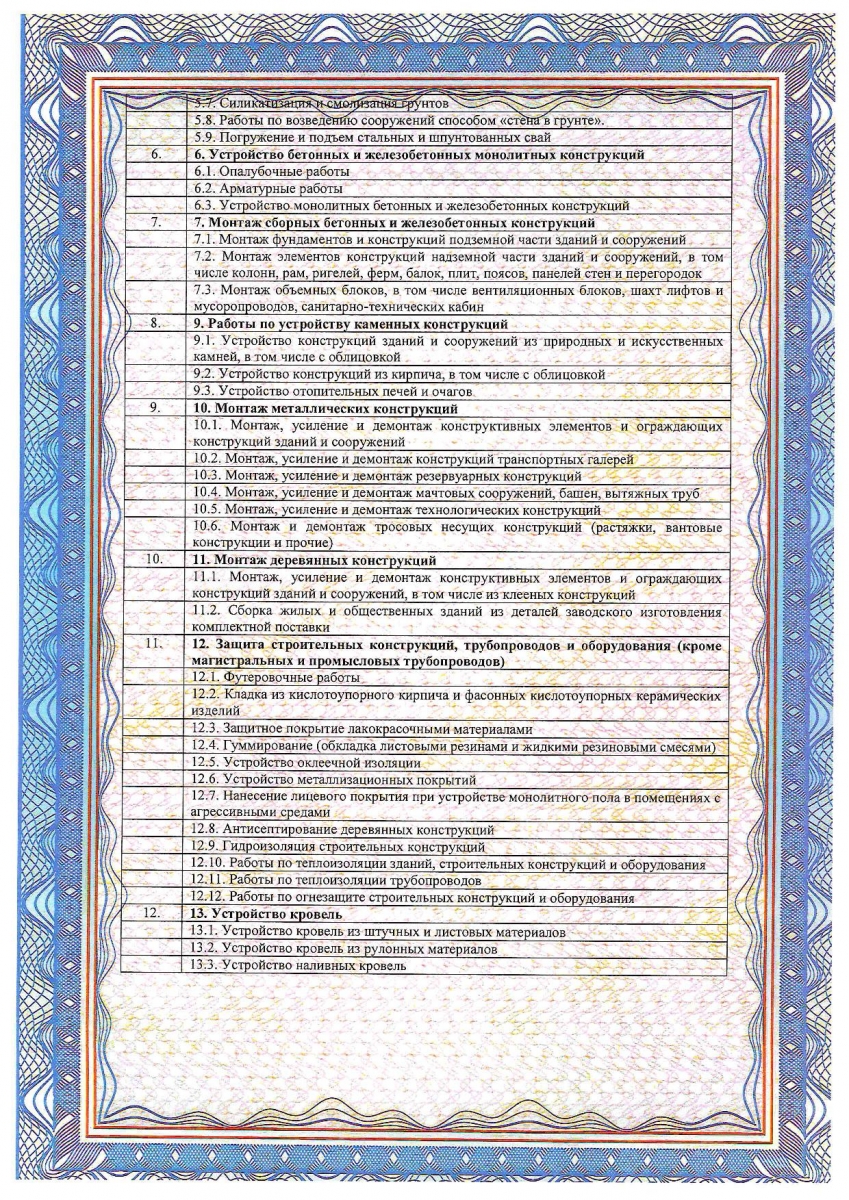 5.7. Силикатизация и смолизация грунтов
5.8. Работы по возведению сооружений способом «стена в грунте».
5.9. Погружение и подъем стальных и шпунтованных свай
6. 6. Устройство бетонных и железобетонных монолитных конструкций
6.1. Опалубочные работы
6.2. Арматурные работы
6.3. Устройство монолитных бетонных и железобетонных конструкций
7. 7. Монтаж сборных бетонных и железобетонных конструкций
7.1. Монтаж фундаментов и конструкций подземной части зданий и сооружений
7.2. Монтаж элементов конструкций надземной части зданий и сооружений, в том
числе колонн, рам, ригелей, ферм, балок, плит, поясов, панелей стен и перегородок
7.3. Монтаж объемных блоков, в том числе вентиляционных блоков, шахт лифтов и
мусоропроводов, санитарно-технических кабин
8. 9. Работы по устройству каменных конструкций
9.1. Устройство конструкций зданий и сооружений из природных и искусственных
камней, в том числе с облицовкой
9.2. Устройство конструкций из кирпича, в том числе с облицовкой
9.3. Устройство отопительных печей и очагов
9. 10. Монтаж металлических конструкций
10.1. Монтаж, усиление и демонтаж конструктивных элементов и ограждающих
конструкций зданий и сооружений
10.2. Монтаж, усиление и демонтаж конструкций транспортных галерей
10.3. Монтаж, усиление и демонтаж резервуарных конструкций
10.4. Монтаж, усиление и демонтаж мачтовых сооружений, башен, вытяжных труб
10.5. Монтаж, усиление и демонтаж технологических конструкций
10.6. Монтаж и демонтаж тросовых несущих конструкций (растяжки, вантовые
конструкции и прочие)
10. 11. Монтаж деревянных конструкций
11.1. Монтаж, усиление и демонтаж конструктивных элементов и ограждающих
конструкций зданий и сооружений, в том числе из клееных конструкций
11.2. Сборка жилых и общественных зданий из деталей заводского изготовления
комплектной поставки
11. 12. Защита строительных конструкций, трубопроводов и оборудования (кроме
магистральных и промысловых трубопроводов)
12.1. Футеровочные работы
12.2. Кладка из кислотоупорного кирпича и фасонных кислотоупорных керамических
изделий
12.3. Защитное покрытие лакокрасочными материалами
12.4. Гуммирование (обкладка листовыми резинами и жидкими резиновыми смесями)
12.5. Устройство оклеечной изоляции
12.6. Устройство металлизационных покрытий
12.7. Нанесение лицевого покрытия при устройстве монолитного пола в помещениях с
агрессивными средами
12.8. Антисептирование деревянных конструкций
12.9. Гидроизоляция строительных конструкций
12.10. Работы по теплоизоляции зданий, строительных конструкций и оборудования
12.11. Работы по теплоизоляции трубопроводов
12.12. Работы по огнезащите строительных конструкций и оборудования
12. 13. Устройство кровель
13.1. Устройство кровель из штучных и листовых материалов
13.2. Устройство кровель из рулонных материалов
13.3. Устройство наливных кровель